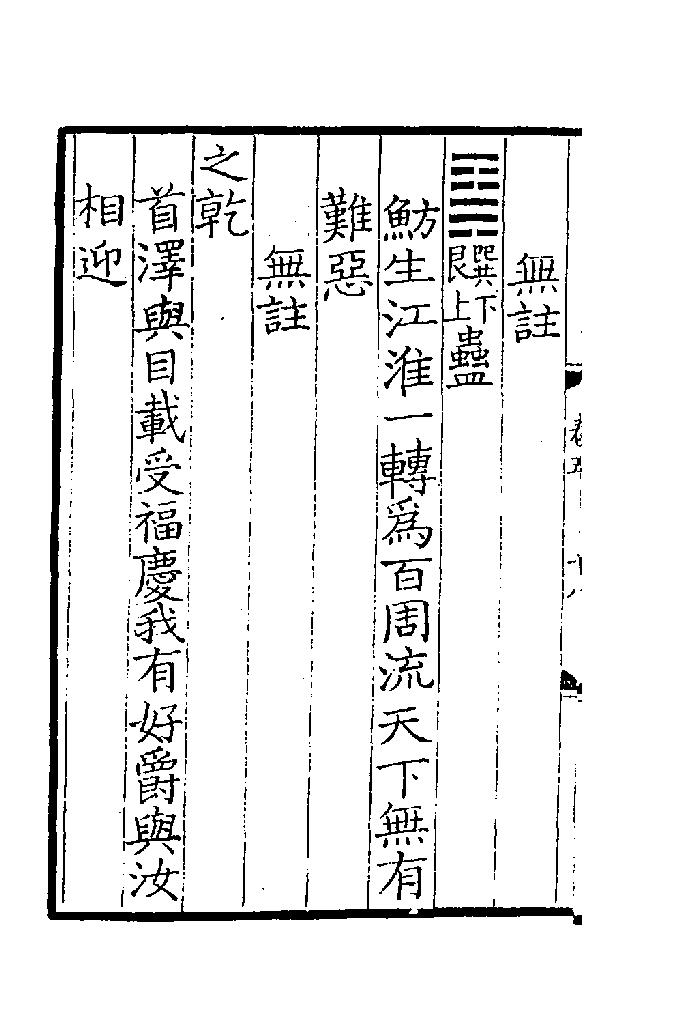 無註
䷑巽下艮上蠱
魴生江淮一轉為百周流天下無有
難惡
無註
之乾
首澤與目載受福慶我有好爵與汝
相迎